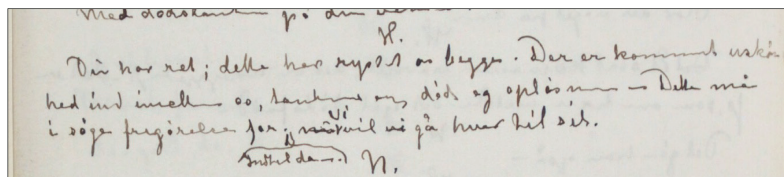 Med dødstanken på den
H.
Du har ret; dette har rystet os begge. Der er kommet uskøn-
hed ind imellem os, tanken om død og opløsning. Dette må
vi søge frigørelse for; vil vi gå hver til sit.
N.